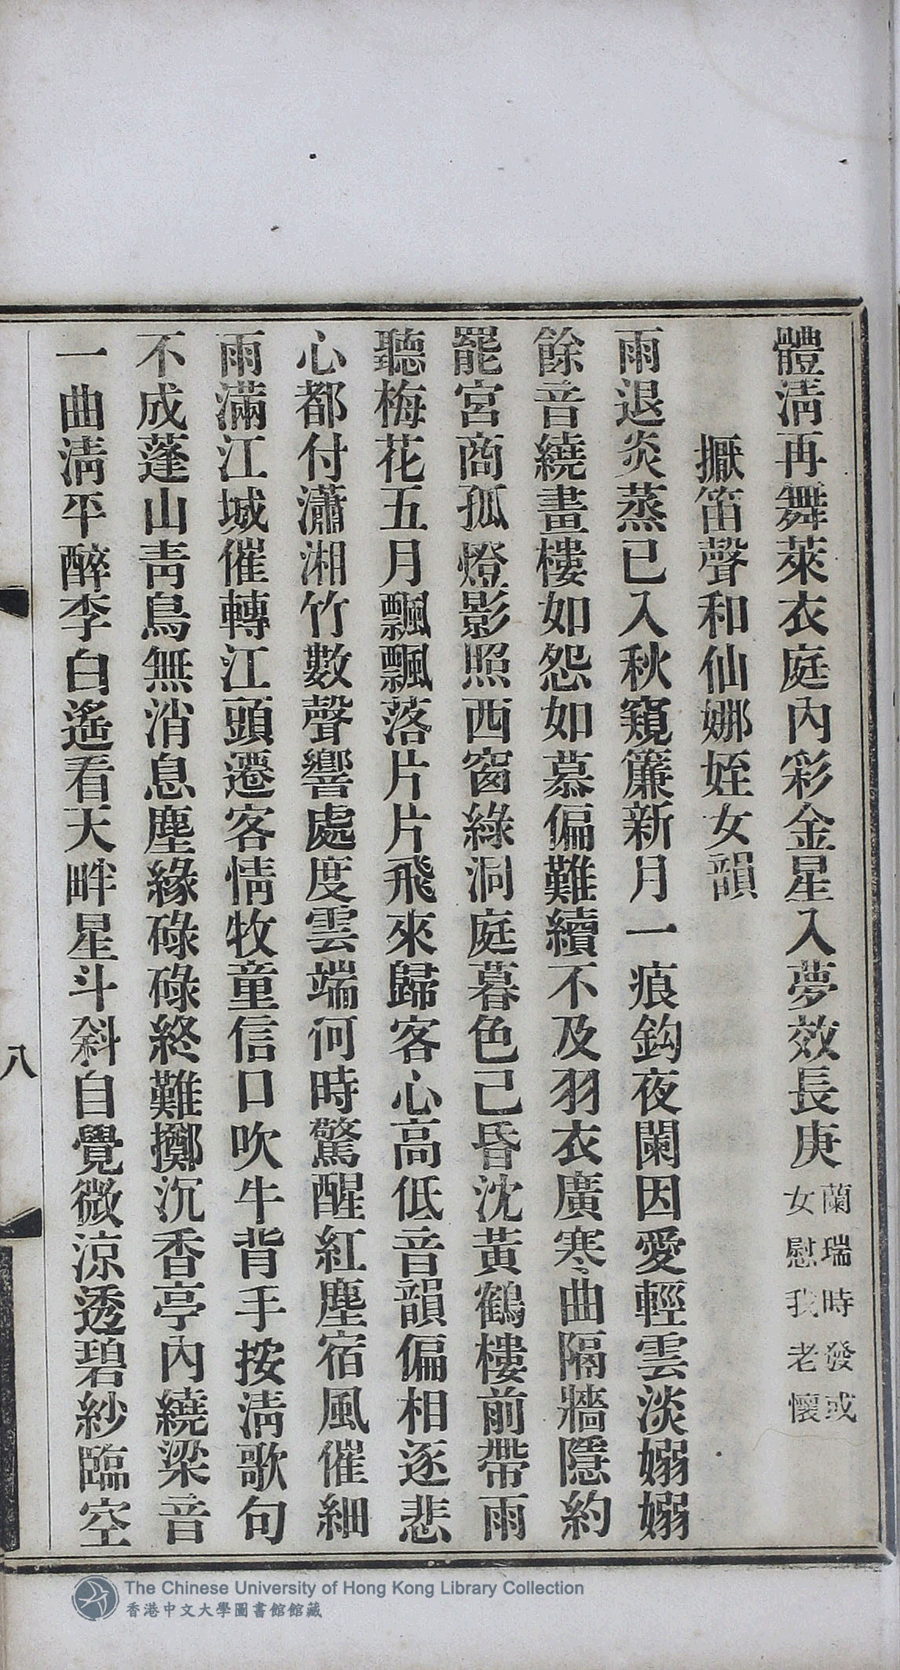 體淸再舞萊衣庭內彩金星入夢效長庚蘭瑞時發或女慰我老懷
擫笛聲和仙娜姪女韻
雨退炎蒸已入秋窺簾新月一痕鈎夜闌因愛輕雲淡嫋嫋
餘音繞畫樓如怨如慕偏難續不及羽衣廣寒曲隔牆隱約
罷宮商孤燈影照西窗綠洞庭暮色已昏沈黃鶴樓前帶雨
聽梅花五月飄飄落片片飛來歸客心高低音韻偏相逐悲
心都付瀟湘竹數聲響處度雲端何時驚醒紅塵宿風催細
雨滿江城催轉江頭遷客情牧童信口吹牛背手按淸歌句
不成蓬山靑鳥無消息塵緣碌碌終難擲沉香亭內繞梁音
一曲淸平醉李白遙看天畔星斗斜自覺微涼透碧紗臨空
八
The Chinese University of Hong Kong Library Collection
香港中文大學圖書館館藏